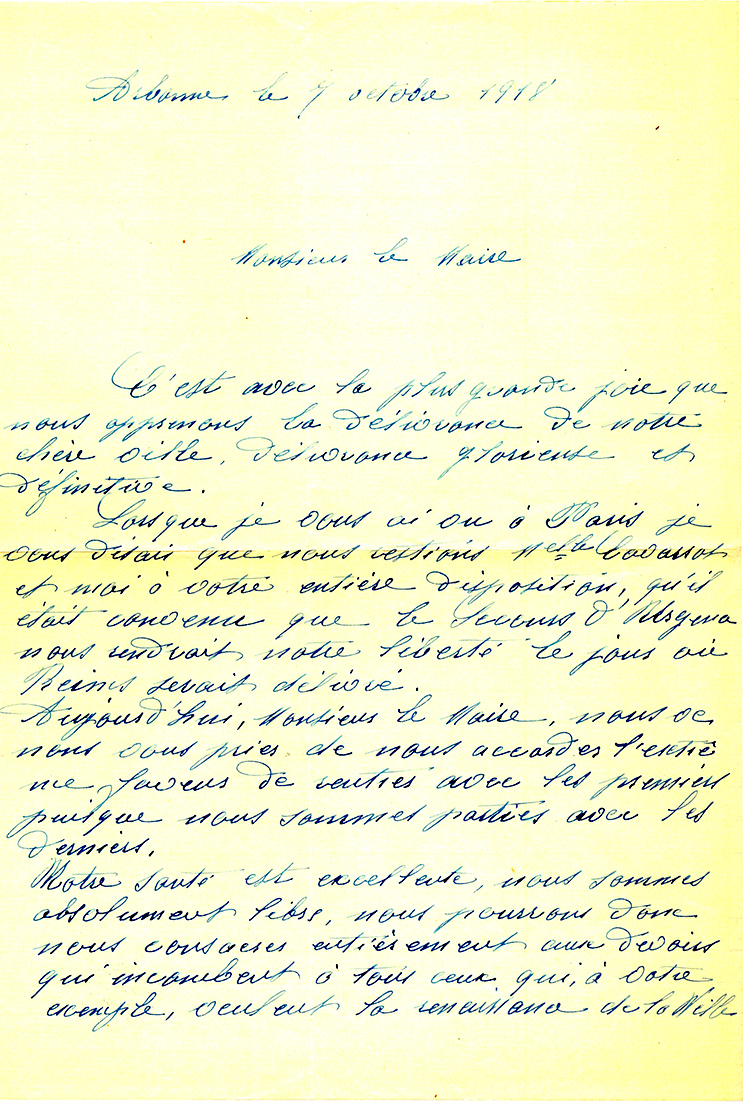 Arbonne le 7 octobre 1918
Monsieur le Maire
C'est avec la plus grande joie que
nous apprenons la délivrance de notre
chère ville, délivrance glorieuse et
définitive.
Lorsque je vous ai vu à Paris je
vous disais que nous restions Melle Cavarrot
et moi à votre entière disposition, qu'il
était convenu que le Secours d'Urgence
nous rendrait notre liberté le jour où
Reims serait délivré.
Aujourd'hui, Monsieur le Maire, nous ve
nons vous prier de nous accorder l'extrê
me faveur de rentrer avec les premiers
puisque nous sommes parties avec les
derniers.
Notre santé est excellente, nous sommes
absolument libre, nous pourrons donc
nous consacrer entièrement aux devoirs
qui incombent à tous ceux qui, à votre
exemple, veulent la renaissance de la Ville